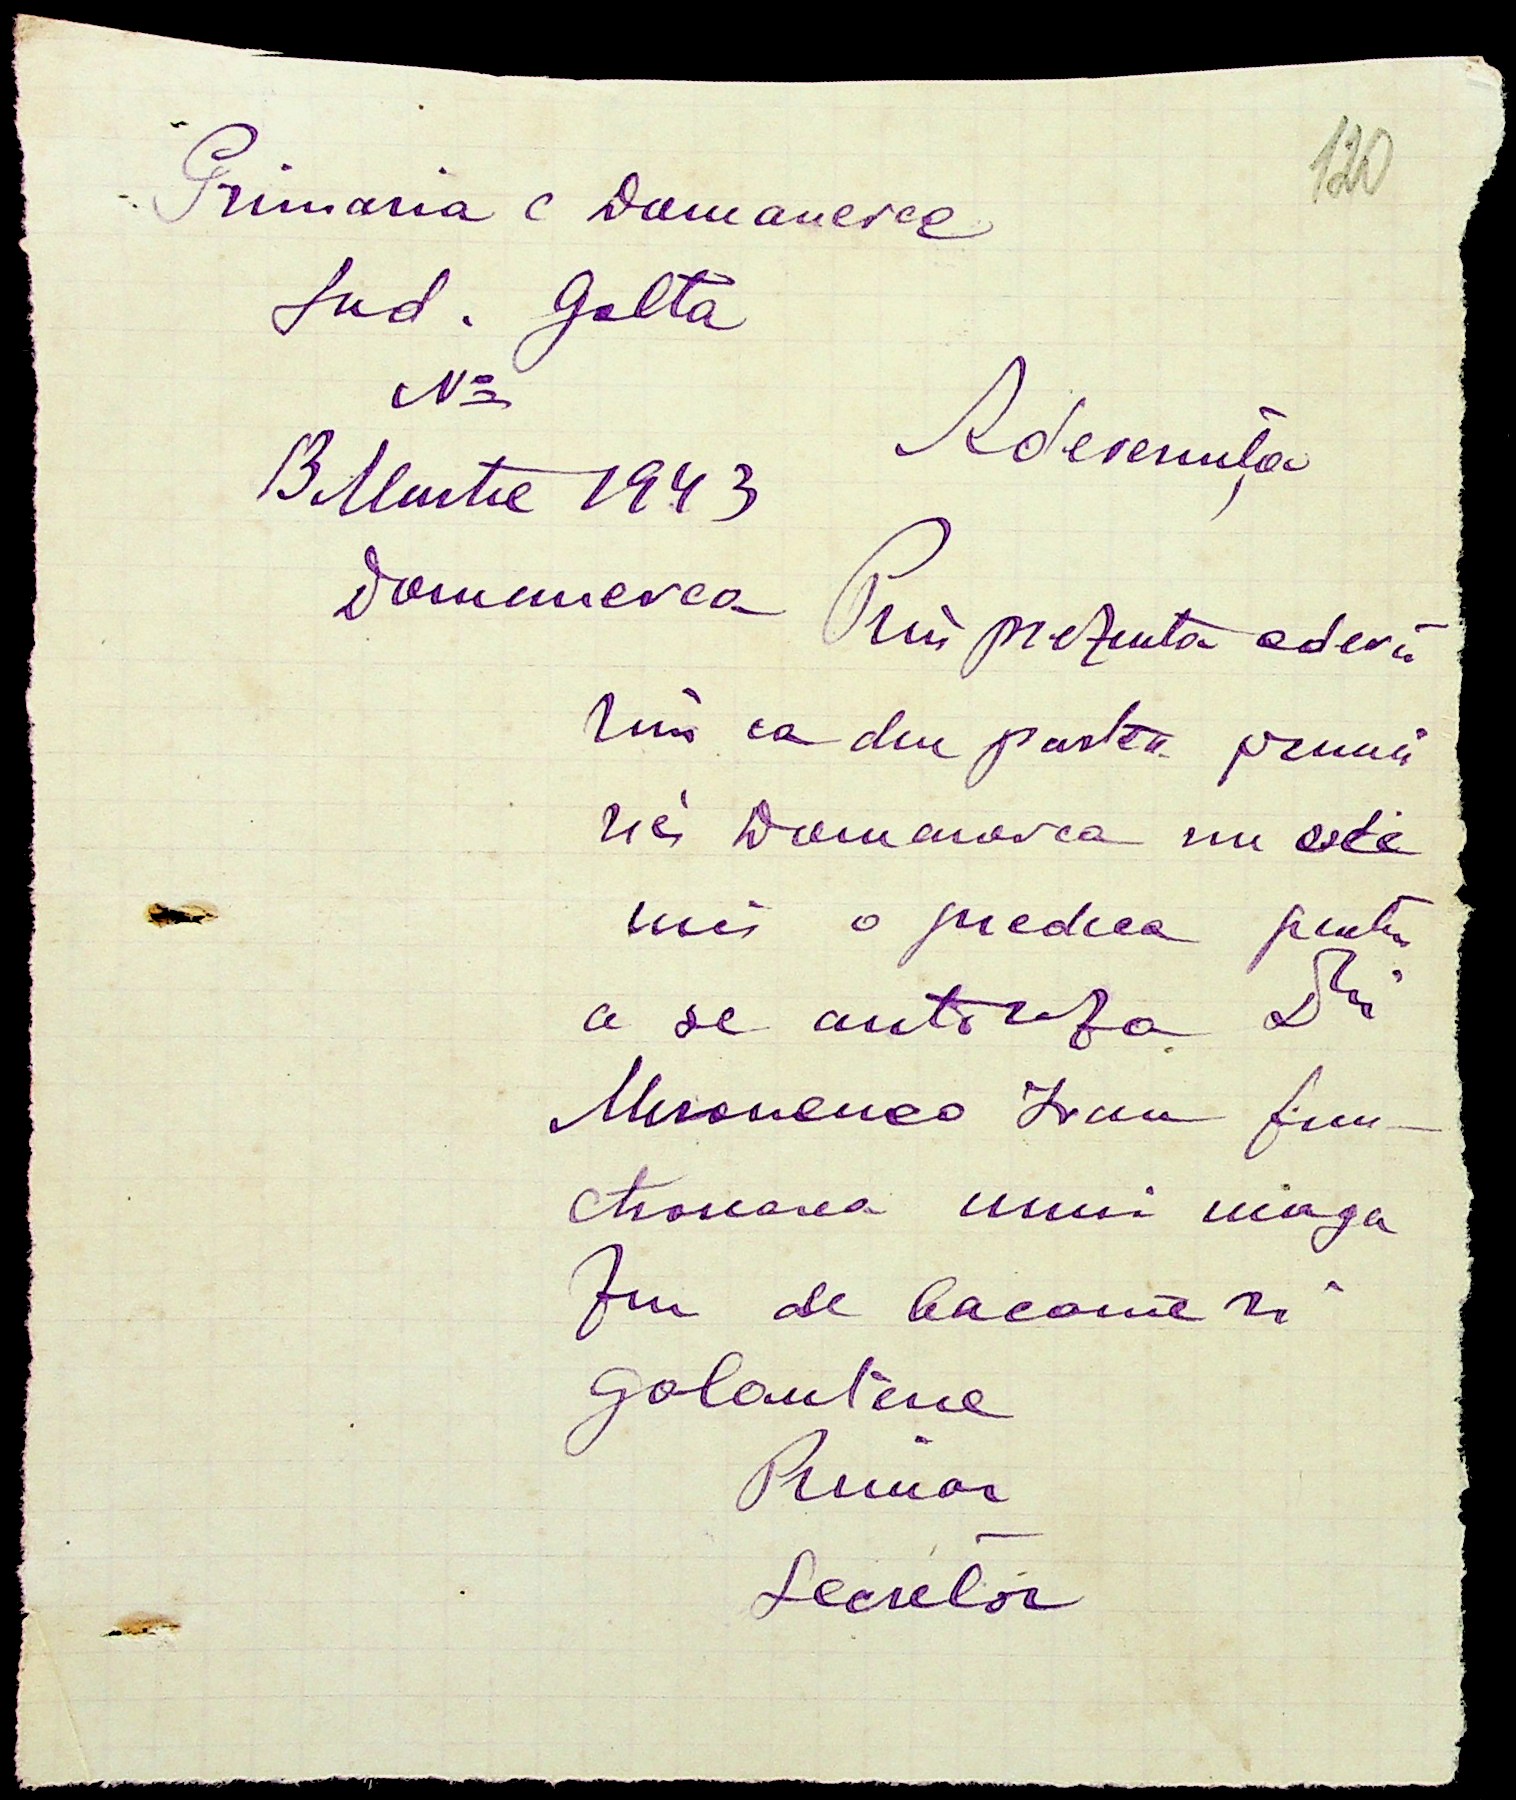 120
Primaria c Domanevca
Jud. Golta
No
13 Martie 1943
Adeverinţa
Domanevca
Prin prezenta adeve
rim ca din partea primă
riei Domanevca nu este
nici o piedica pentru
a se autoriza Dlui
Mironenco Ivan fun-
ctionarea unui maga
zin de bacanie si
galanterie
Primar
Secretar